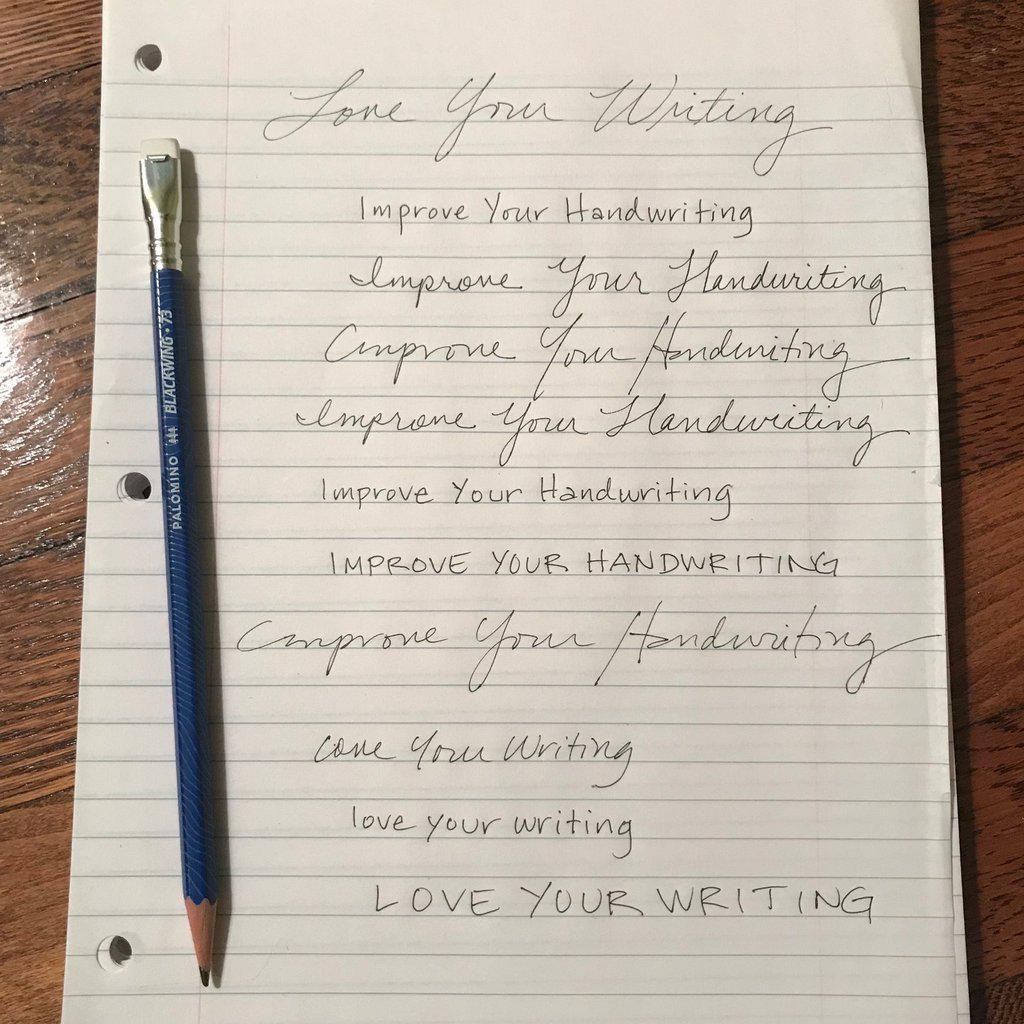 Love Your Writing
Improve Your Handwriting
Improve Your Handwriting
Improve Your Handwriting
Improve Your Handwriting
Improve Your Handwriting
IMPROVE YOUR HANDWRITING
Improve Your Handwriting
Love Your Writing
love your writing
LOVE YOUR WRITING
PALOMINO BLACKWING • 73